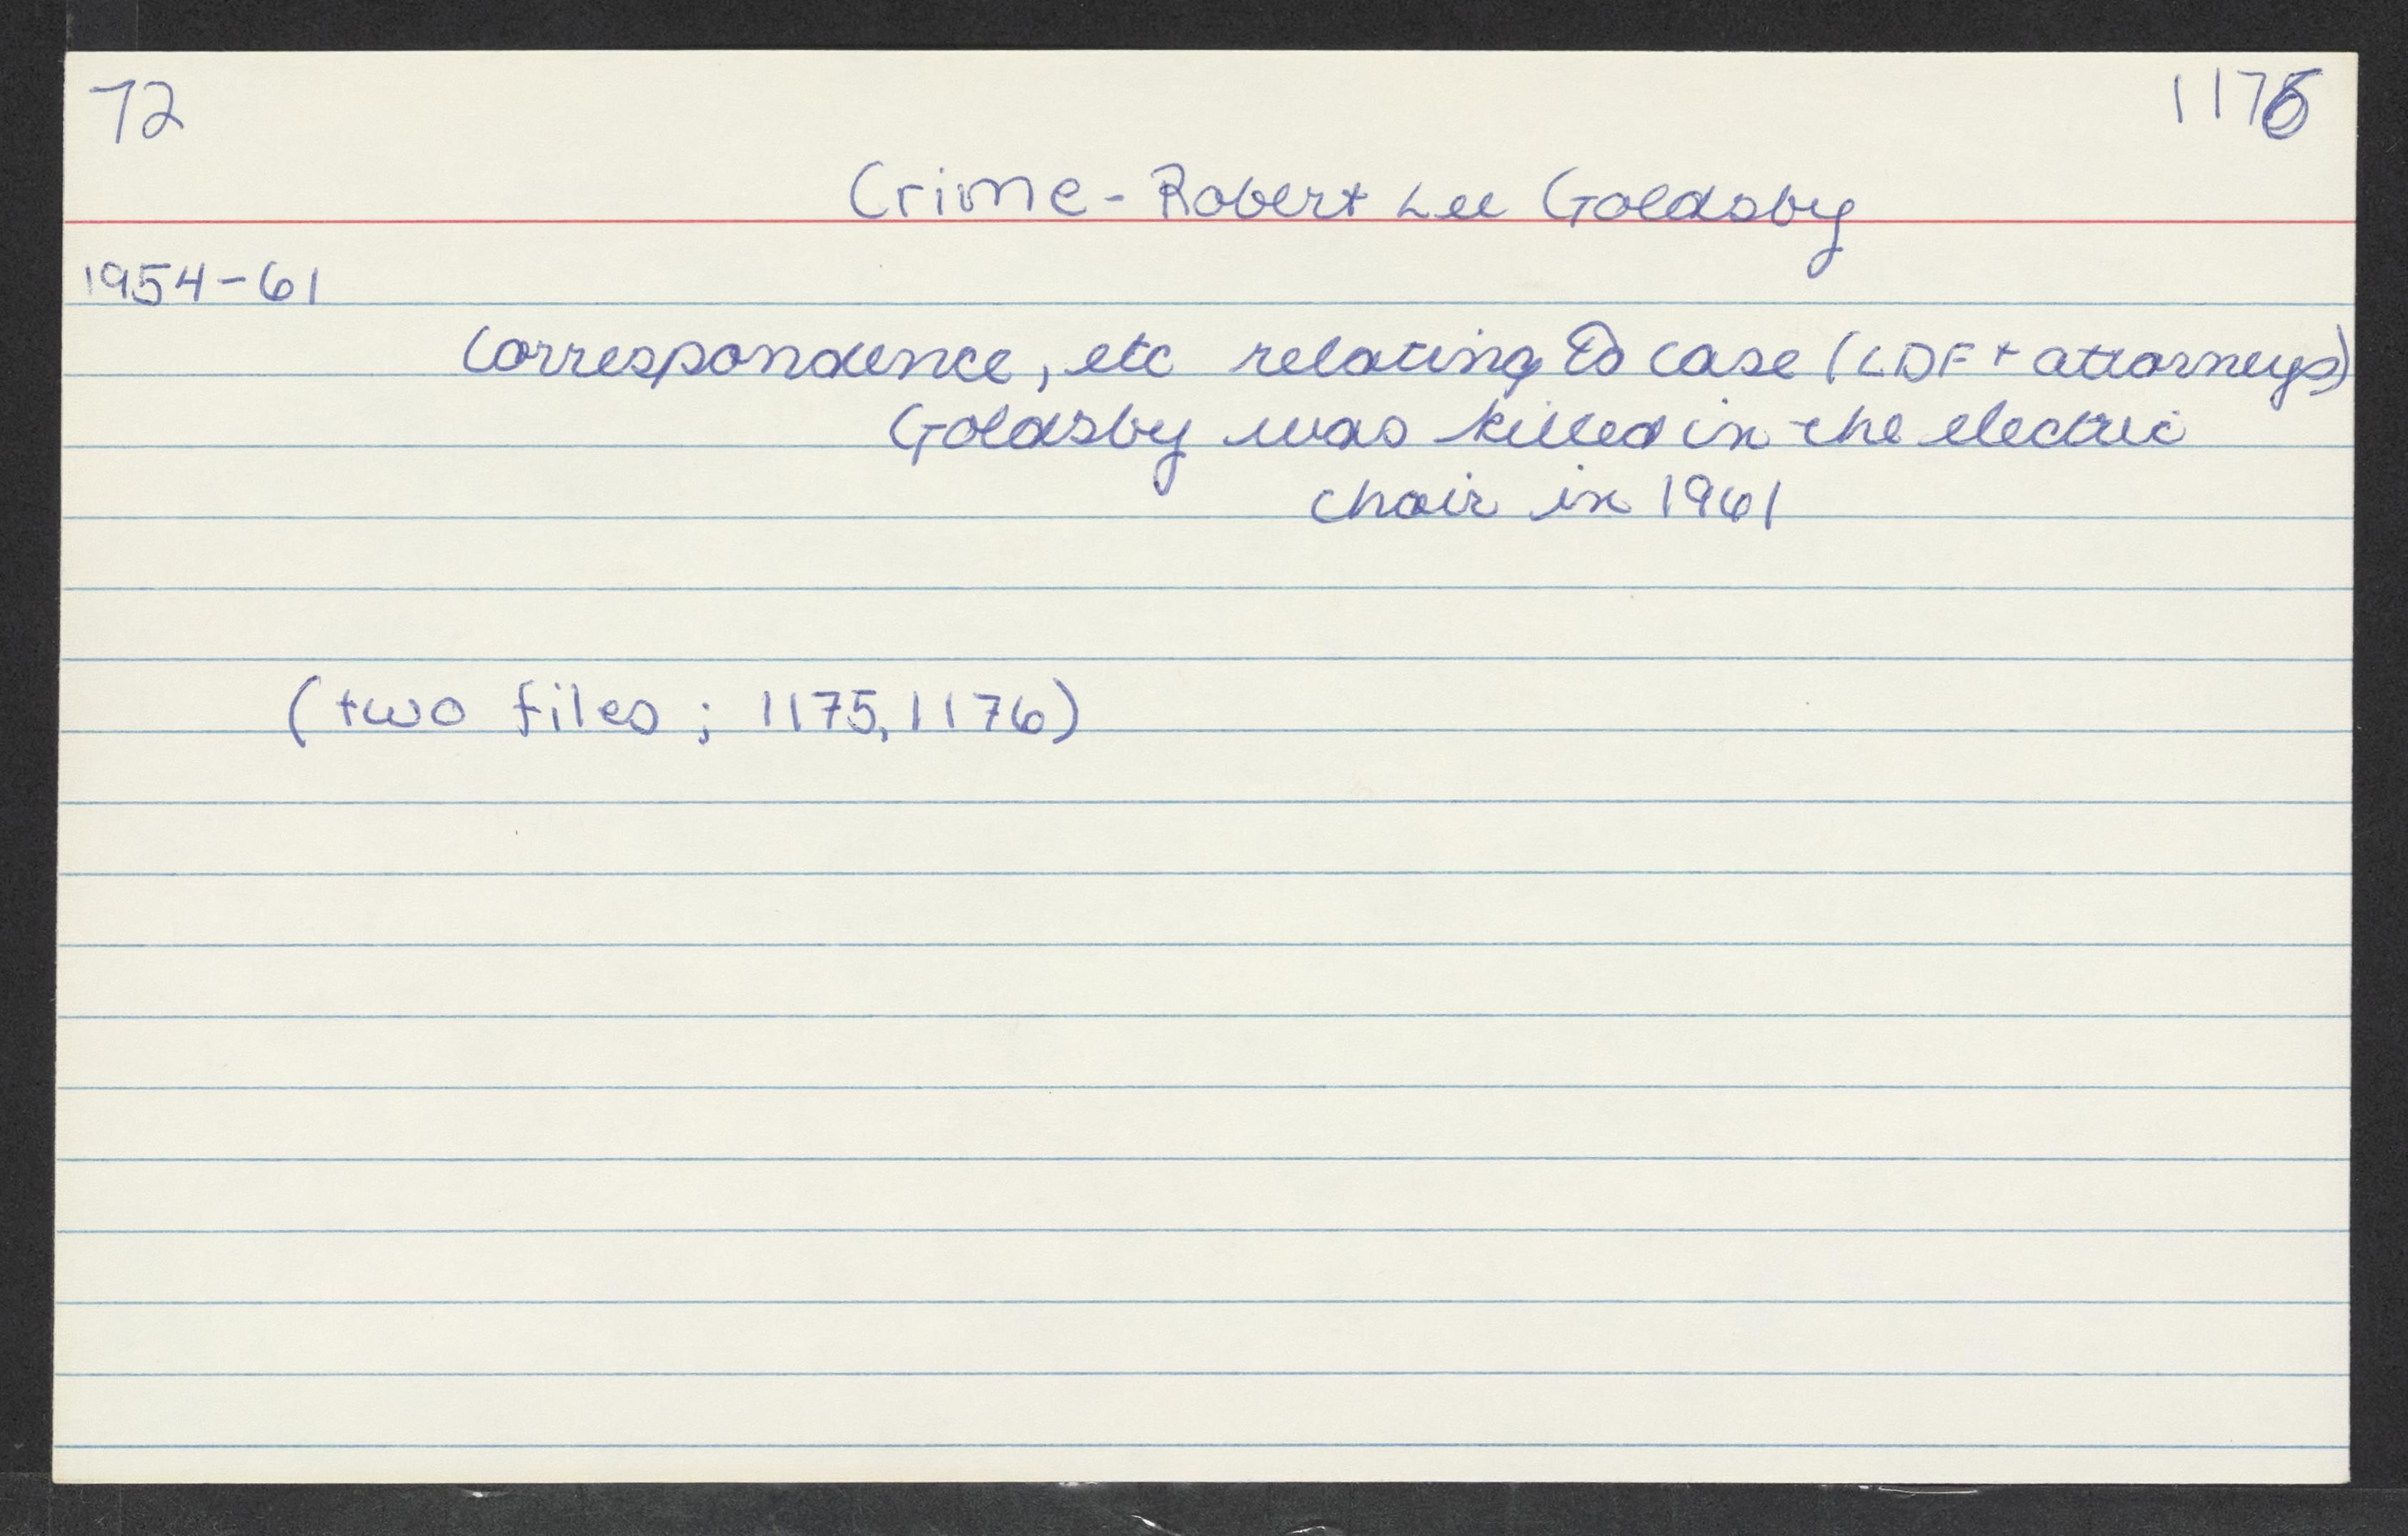 72 1176
Crime - Robert Lee Goldsby
1954-61
Correspondence, etc relating to case (LDF + attorneys)
Goldsby was killed in the electric
chair in 1961
(two files; 1175, 1176)